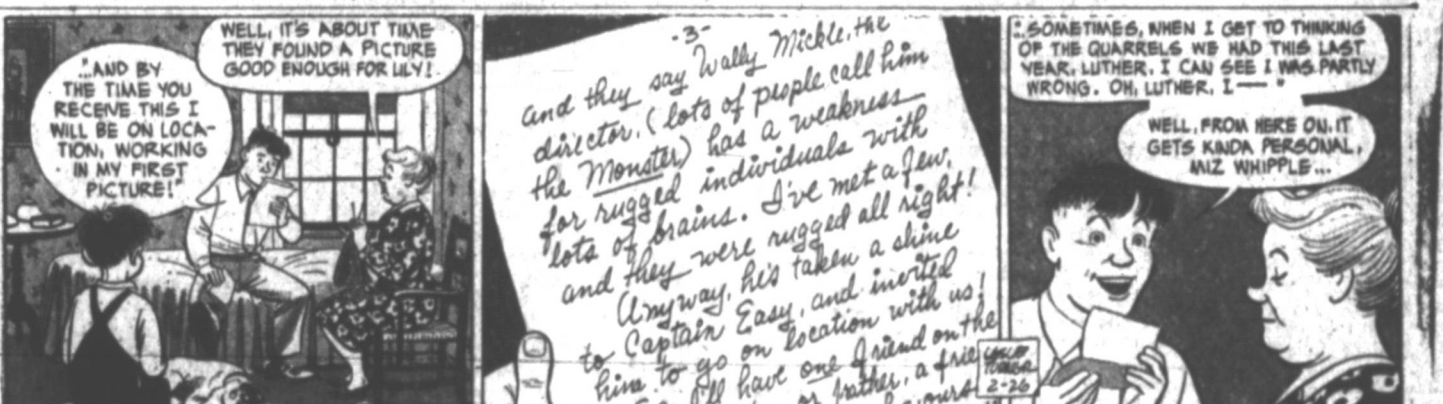 "...AND BY
THE TIME YOU
RECEIVE THIS I
WILL BE ON LOCA-
TION, WORKING
IN MY FIRST
PICTURE!"
WELL, IT'S ABOUT TIME
THEY FOUND A PICTURE
GOOD ENOUGH FOR LILY!
-3-
and they say Wally Mickle, the
director, (lots of people call him
the Monster) has a weakness
for rugged individuals with
lots of brains. I've met a few,
and they were rugged all right!
Anyway, he's taken a shine
to Captain Easy, and invited
him to go on location with us!
I'll have one friend on the
or rather, a
yours
2-26
"SOMETIMES, WHEN I GET TO THINKING
OF THE QUARRELS WE HAD THIS LAST
YEAR, LUTHER, I CAN SEE I WAS PARTLY
WRONG. OH, LUTHER, I— "
WELL, FROM HERE ON, IT
GETS KINDA PERSONAL,
MIZ WHIPPLE...